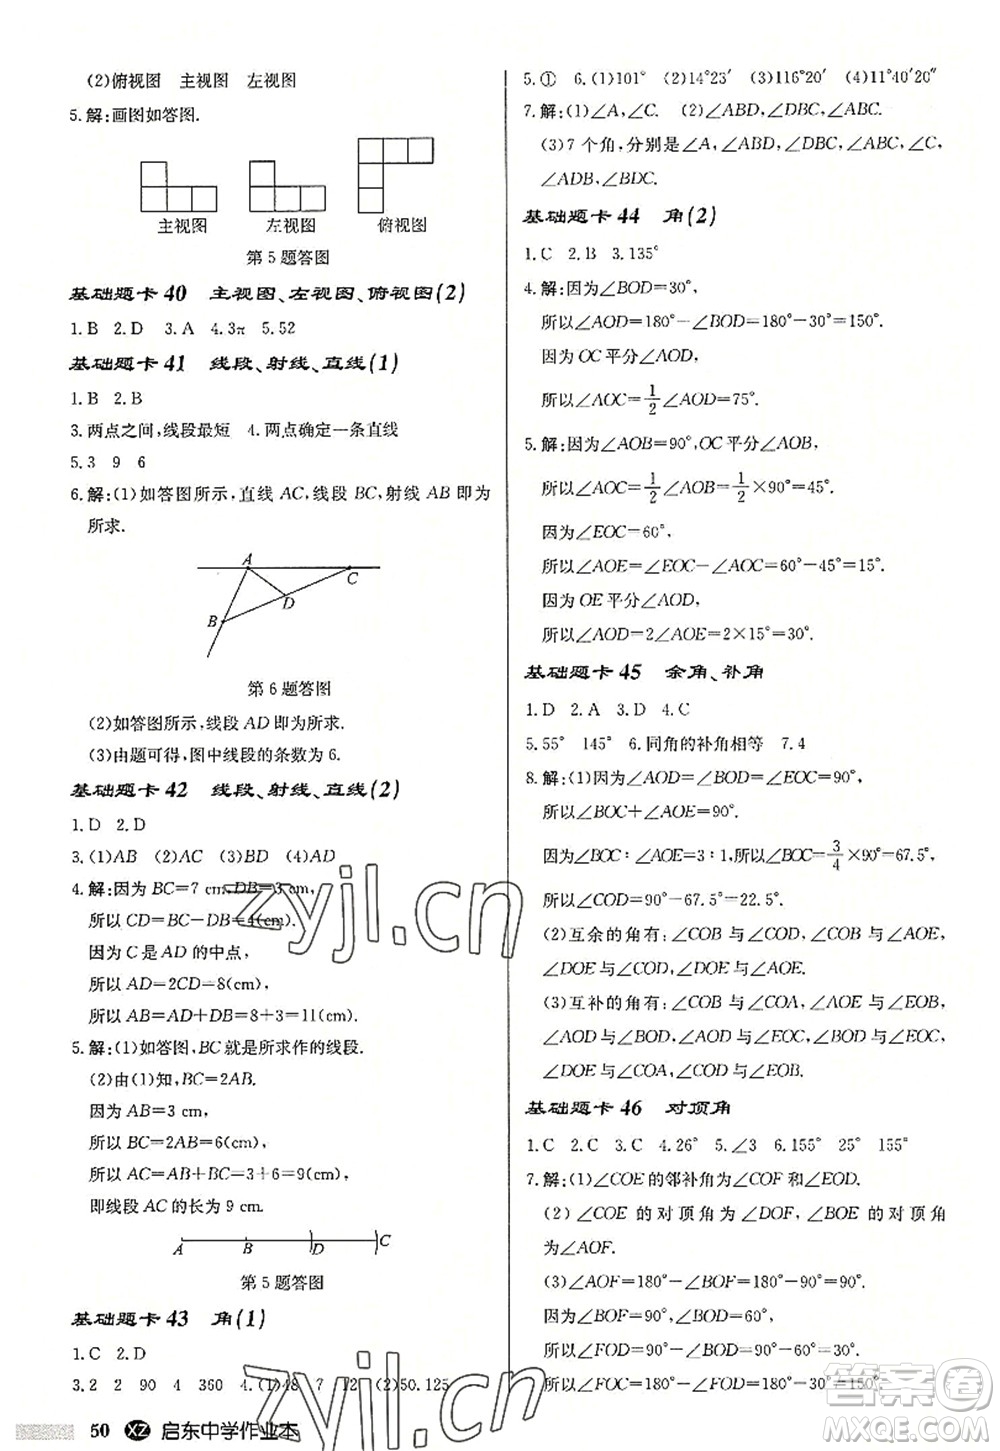 (2)俯视图 主视图 左视图
5.解:画图如答图.
主视图 左视图 俯视图
第5题答图
基础题卡40 主视图、左视图、俯视图(2)
1.B 2.D 3.A 4.3π 5.52
基础题卡41 线段、射线、直线(1)
1.B 2.B
3.两点之间,线段最短 4.两点确定一条直线
5.3 9 6
6.解:(1)如答图所示,直线AC,线段BC,射线AB即为
所求.
A
C
D
B
第6题答图
(2)如答图所示,线段AD即为所求.
(3)由题可得,图中线段的条数为6.
基础题卡42 线段、射线、直线(2)
1.D 2.D
3.(1)AB (2)AC (3)BD (4)AD
4.解:因为BC=7 cm,DB=3 cm,
所以CD=BC-DB=4(cm).
因为C是AD的中点,
所以AD=2CD=8(cm),
所以AB=AD+DB=8+3=11(cm).
5.解:(1)如答图,BC就是所求作的线段.
(2)由(1)知,BC=2AB.
因为AB=3 cm,
所以BC=2AB=6(cm),
所以AC=AB+BC=3+6=9(cm),
即线段AC的长为9 cm.
A B D C
第5题答图
基础题卡43 角(1)
1.C 2.D
3.2 2 90 4 360 4.(1)48 7 12 (2)50.125
5.① 6.(1)101° (2)14°23′ (3)116°20′ (4)11°40′20″
7.解:(1)∠A,∠C. (2)∠ABD,∠DBC,∠ABC.
(3)7个角,分别是∠A,∠ABD,∠DBC,∠ABC,∠C,
∠ADB,∠BDC.
基础题卡44 角(2)
1.C 2.B 3.135°
4.解:因为∠BOD=30°,
所以∠AOD=180°-∠BOD=180°-30°=150°.
因为OC平分∠AOD,
所以∠AOC=1/2∠AOD=75°.
5.解:因为∠AOB=90°,OC平分∠AOB,
所以∠AOC=1/2∠AOB=1/2×90°=45°.
因为∠EOC=60°,
所以∠AOE=∠EOC-∠AOC=60°-45°=15°.
因为OE平分∠AOD,
所以∠AOD=2∠AOE=2×15°=30°.
基础题卡45 余角、补角
1.D 2.A 3.D 4.C
5.55° 145° 6.同角的补角相等 7.4
8.解:(1)因为∠AOD=∠BOD=∠EOC=90°,
所以∠BOC+∠AOE=90°.
因为∠BOC∶∠AOE=3∶1,所以∠BOC=3/4×90°=67.5°,
所以∠COD=90°-67.5°=22.5°.
(2)互余的角有:∠COB与∠COD,∠COB与∠AOE,
∠DOE与∠COD,∠DOE与∠AOE.
(3)互补的角有:∠COB与∠COA,∠AOE与∠EOB,
∠AOD与∠BOD,∠AOD与∠EOC,∠BOD与∠EOC,
∠DOE与∠COA.
基础题卡46 对顶角
1.C 2.C 3.C 4.26° 5.∠3 6.155° 25° 155°
7.解:(1)∠COE的邻补角为∠COF和∠EOD.
(2)∠COE的对顶角为∠DOF,∠BOE的对顶角
为∠AOF.
(3)∠AOF=180°-∠BOF,∠FOD=180°-∠COF.
因为∠BOF=90°,∠BOD=60°,
所以∠AOF=180°-90°=90°,
所以∠FOD=∠BOF-∠BOD=90°-60°=30°,
所以∠FOC=180°-∠FOD=180°-30°=150°.
50 XZ 启东中学作业本
zyjl.cn
zyjl.cn
答案圈
MXQE.COM